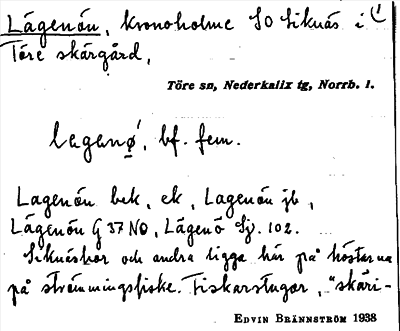 Lägenön, kronoholme SO Siknäs i (1
Töre skärgård,
Töre sn, Nederkalix tg, Norrb. l.
lagenø', bf. fem.
Lagenön bek, ek, Lagenön jb,
Lägenön G 37 NO, Lägenö Sj. 102.
Siknäsbor och andra ligga här på höstarna
på strömmingsfiske. Fiskarstugor, "skäri-
EDVIN BRÄNNSTRÖM 1938